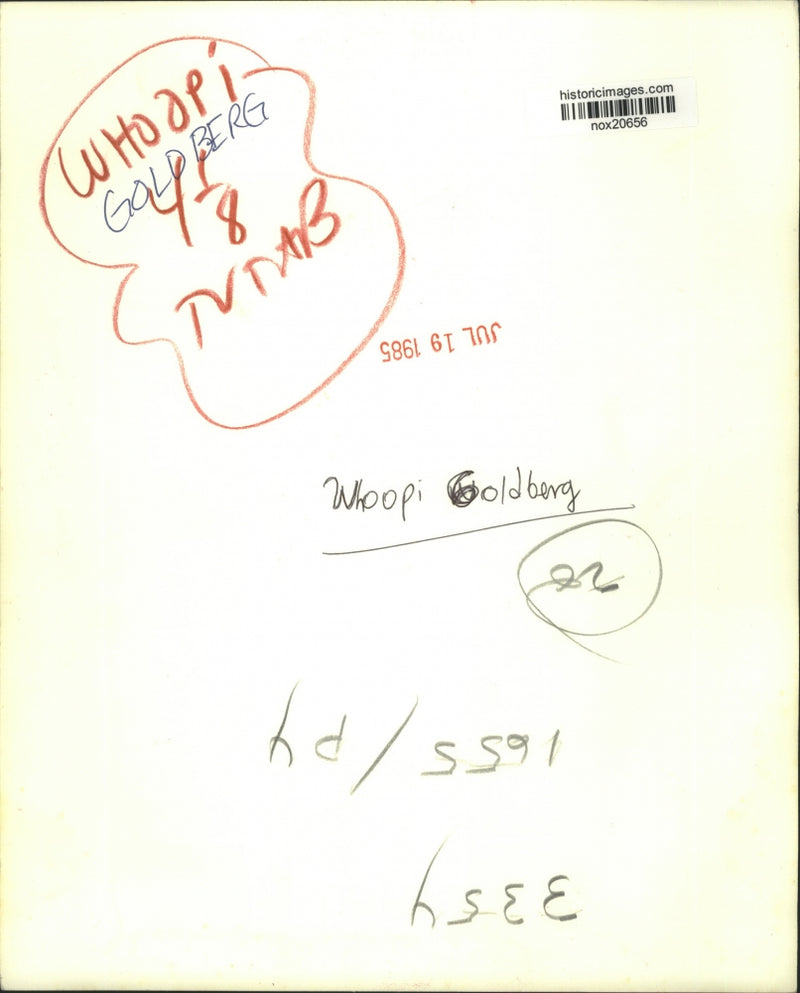 historicimages.com
nox20656
WHOOPI
GOLDBERG
4/8
TV TAB
JUL 19 1985
Whoopi Goldberg
1655/p4
3354